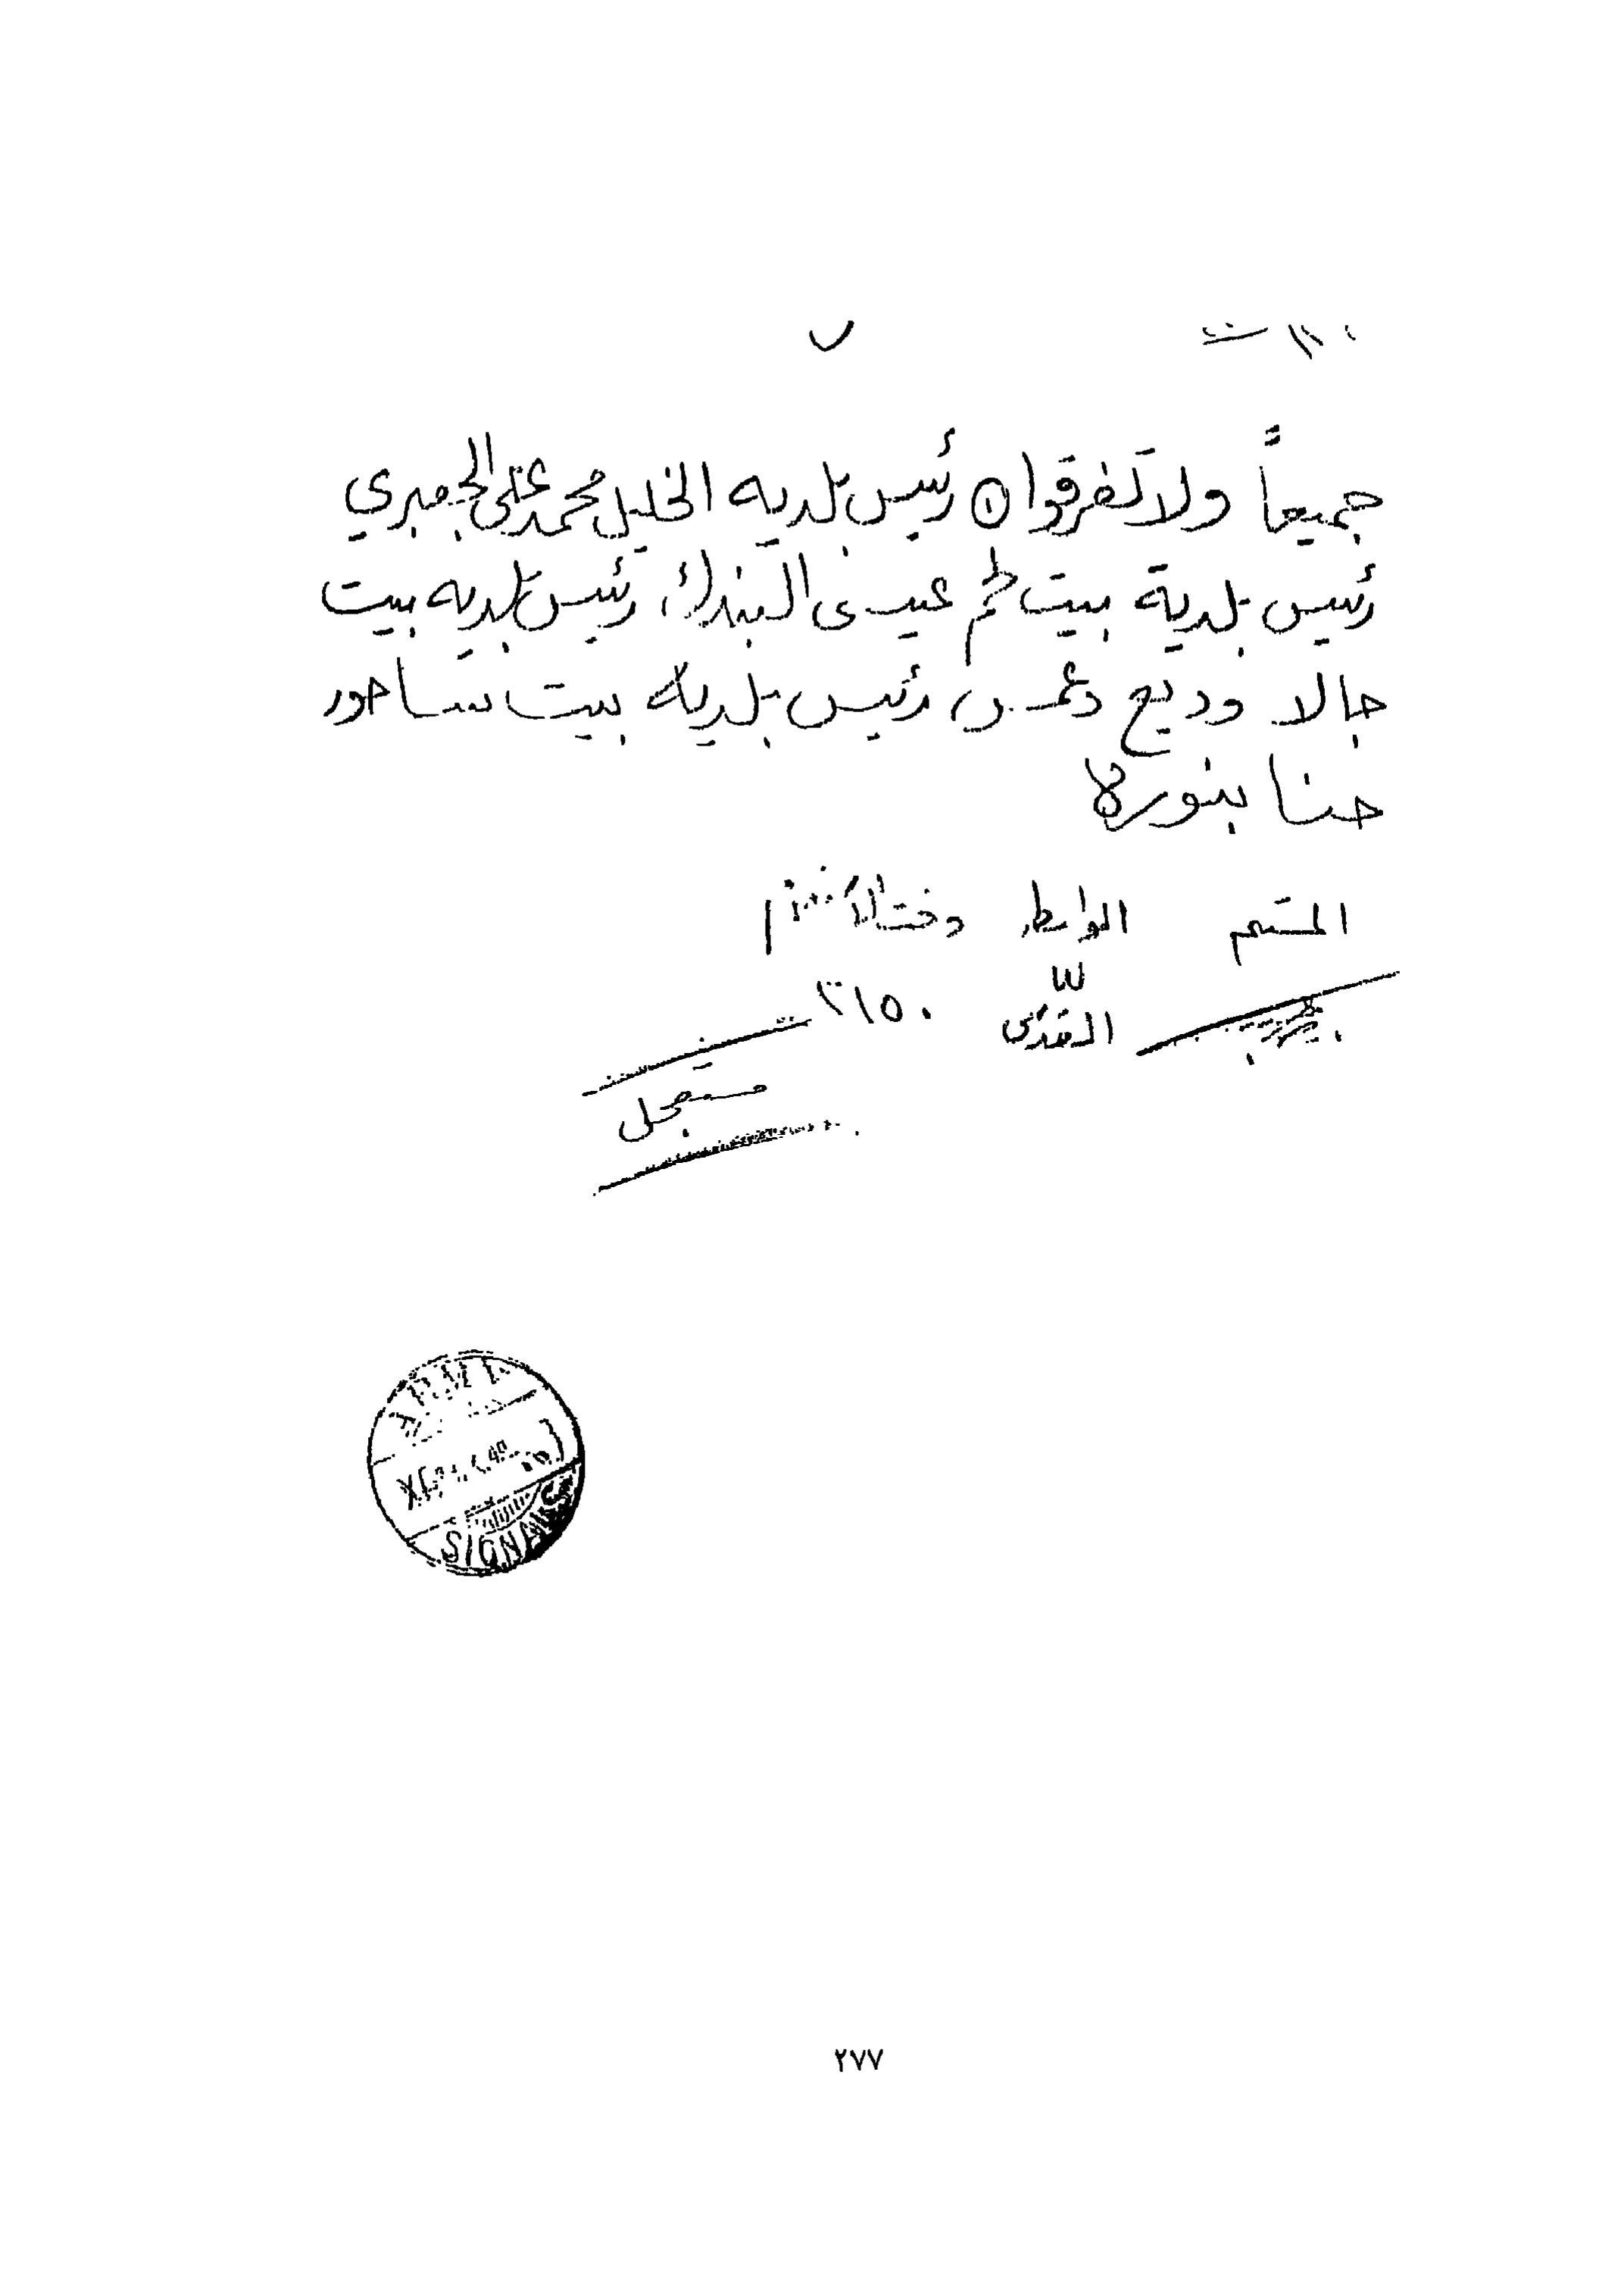 جميعاً ولا تفرقوا ⊙ رئيس بلديه الخليل محمد علي الجعبري
رئيس بلدية بيت لحم عيسى البندك رئيس بلديه بيت
جالا وديع دعمس رئيس بلدية بيت ساحور
حنا بنوره
المستلم الواسطه وقت الاستلام
القدس ٢١٥٠
مستعجل
ARMY
SIGNALS
٢٧٧